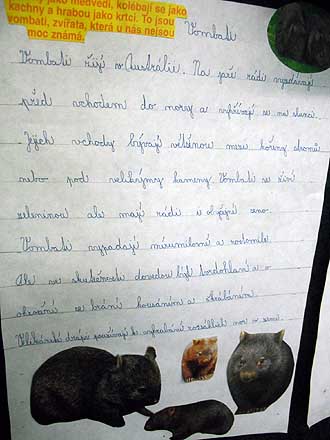 jako medvědi, kolébají se jako
kachny a hrabou jako krtci. To jsou
vombati, zvířata, která u nás nejsou
moc známá.
Vombati
Vombati žijí v Austrálii. Na jaře rádi
před vchodem do nory a vyhřívají se na slunci.
Jejich vchody bývají většinou mezi kořeny stromů
nebo pod velikými kameny. Vombati se živí
zeleninou ale mají rádi i obyčejné seno.
Vombati vypadají mírumilovně a roztomile.
Ale ve skutečnosti dovedou být tvrdohlaví a v
ohrožení se brání kousáním a škrábáním.
drápy používají k vyhrabání rozsáhlých nor v zemi.